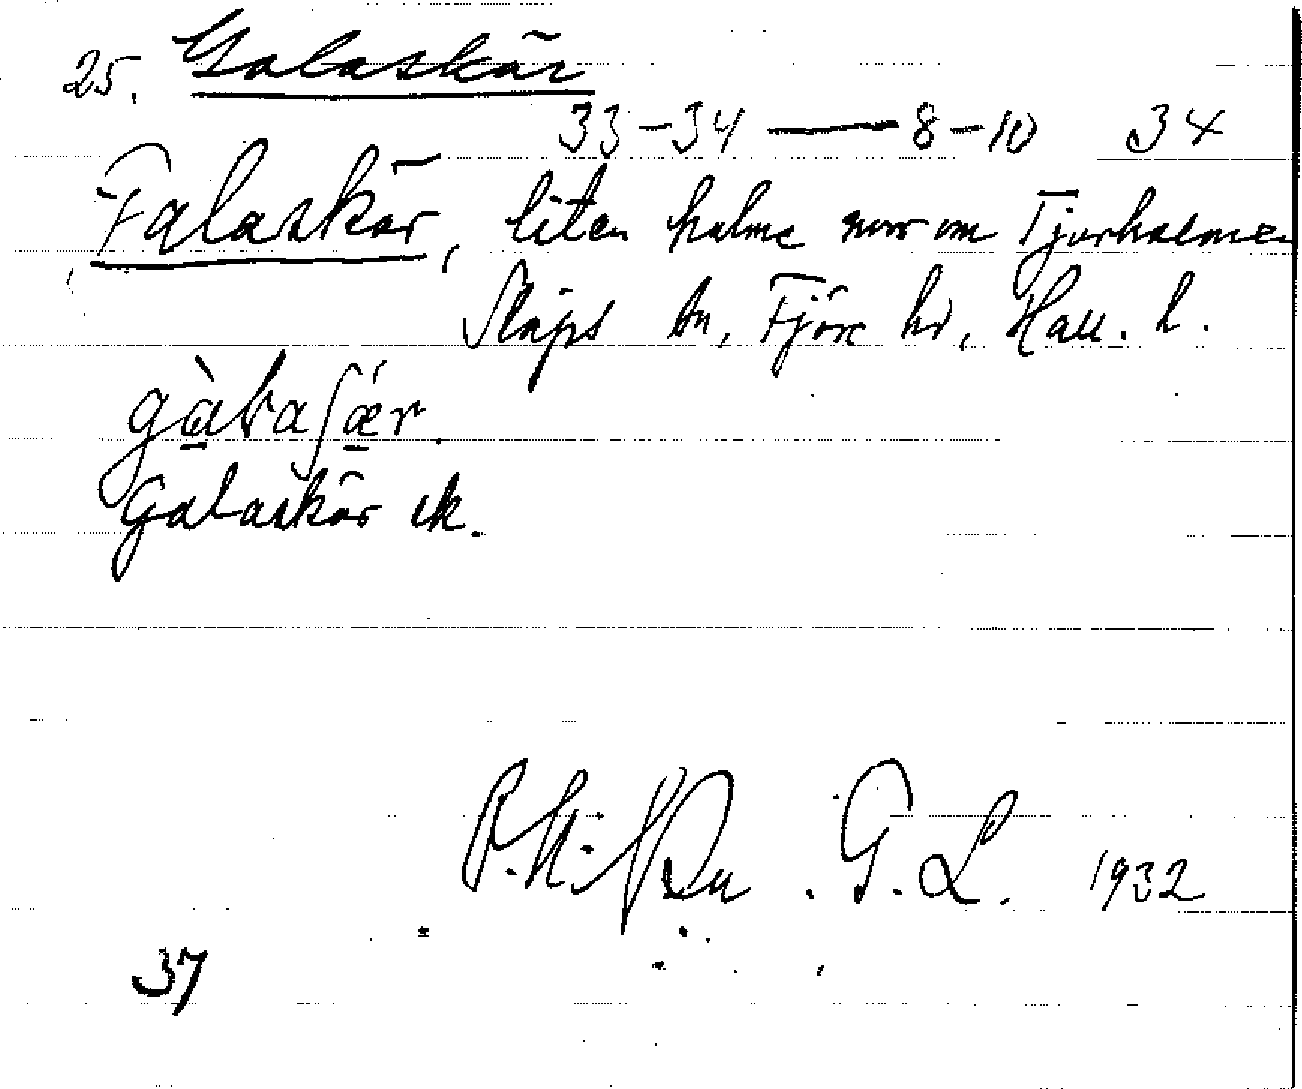 25. Galaskär
33-34 — 8-10 34
Falaskär, liten holme norr om Fjorholmen
Släps sn, Fjäre hd, Hall. l.
gàlaʃǽr.
Galaskär ek.
G. L. 1932
37